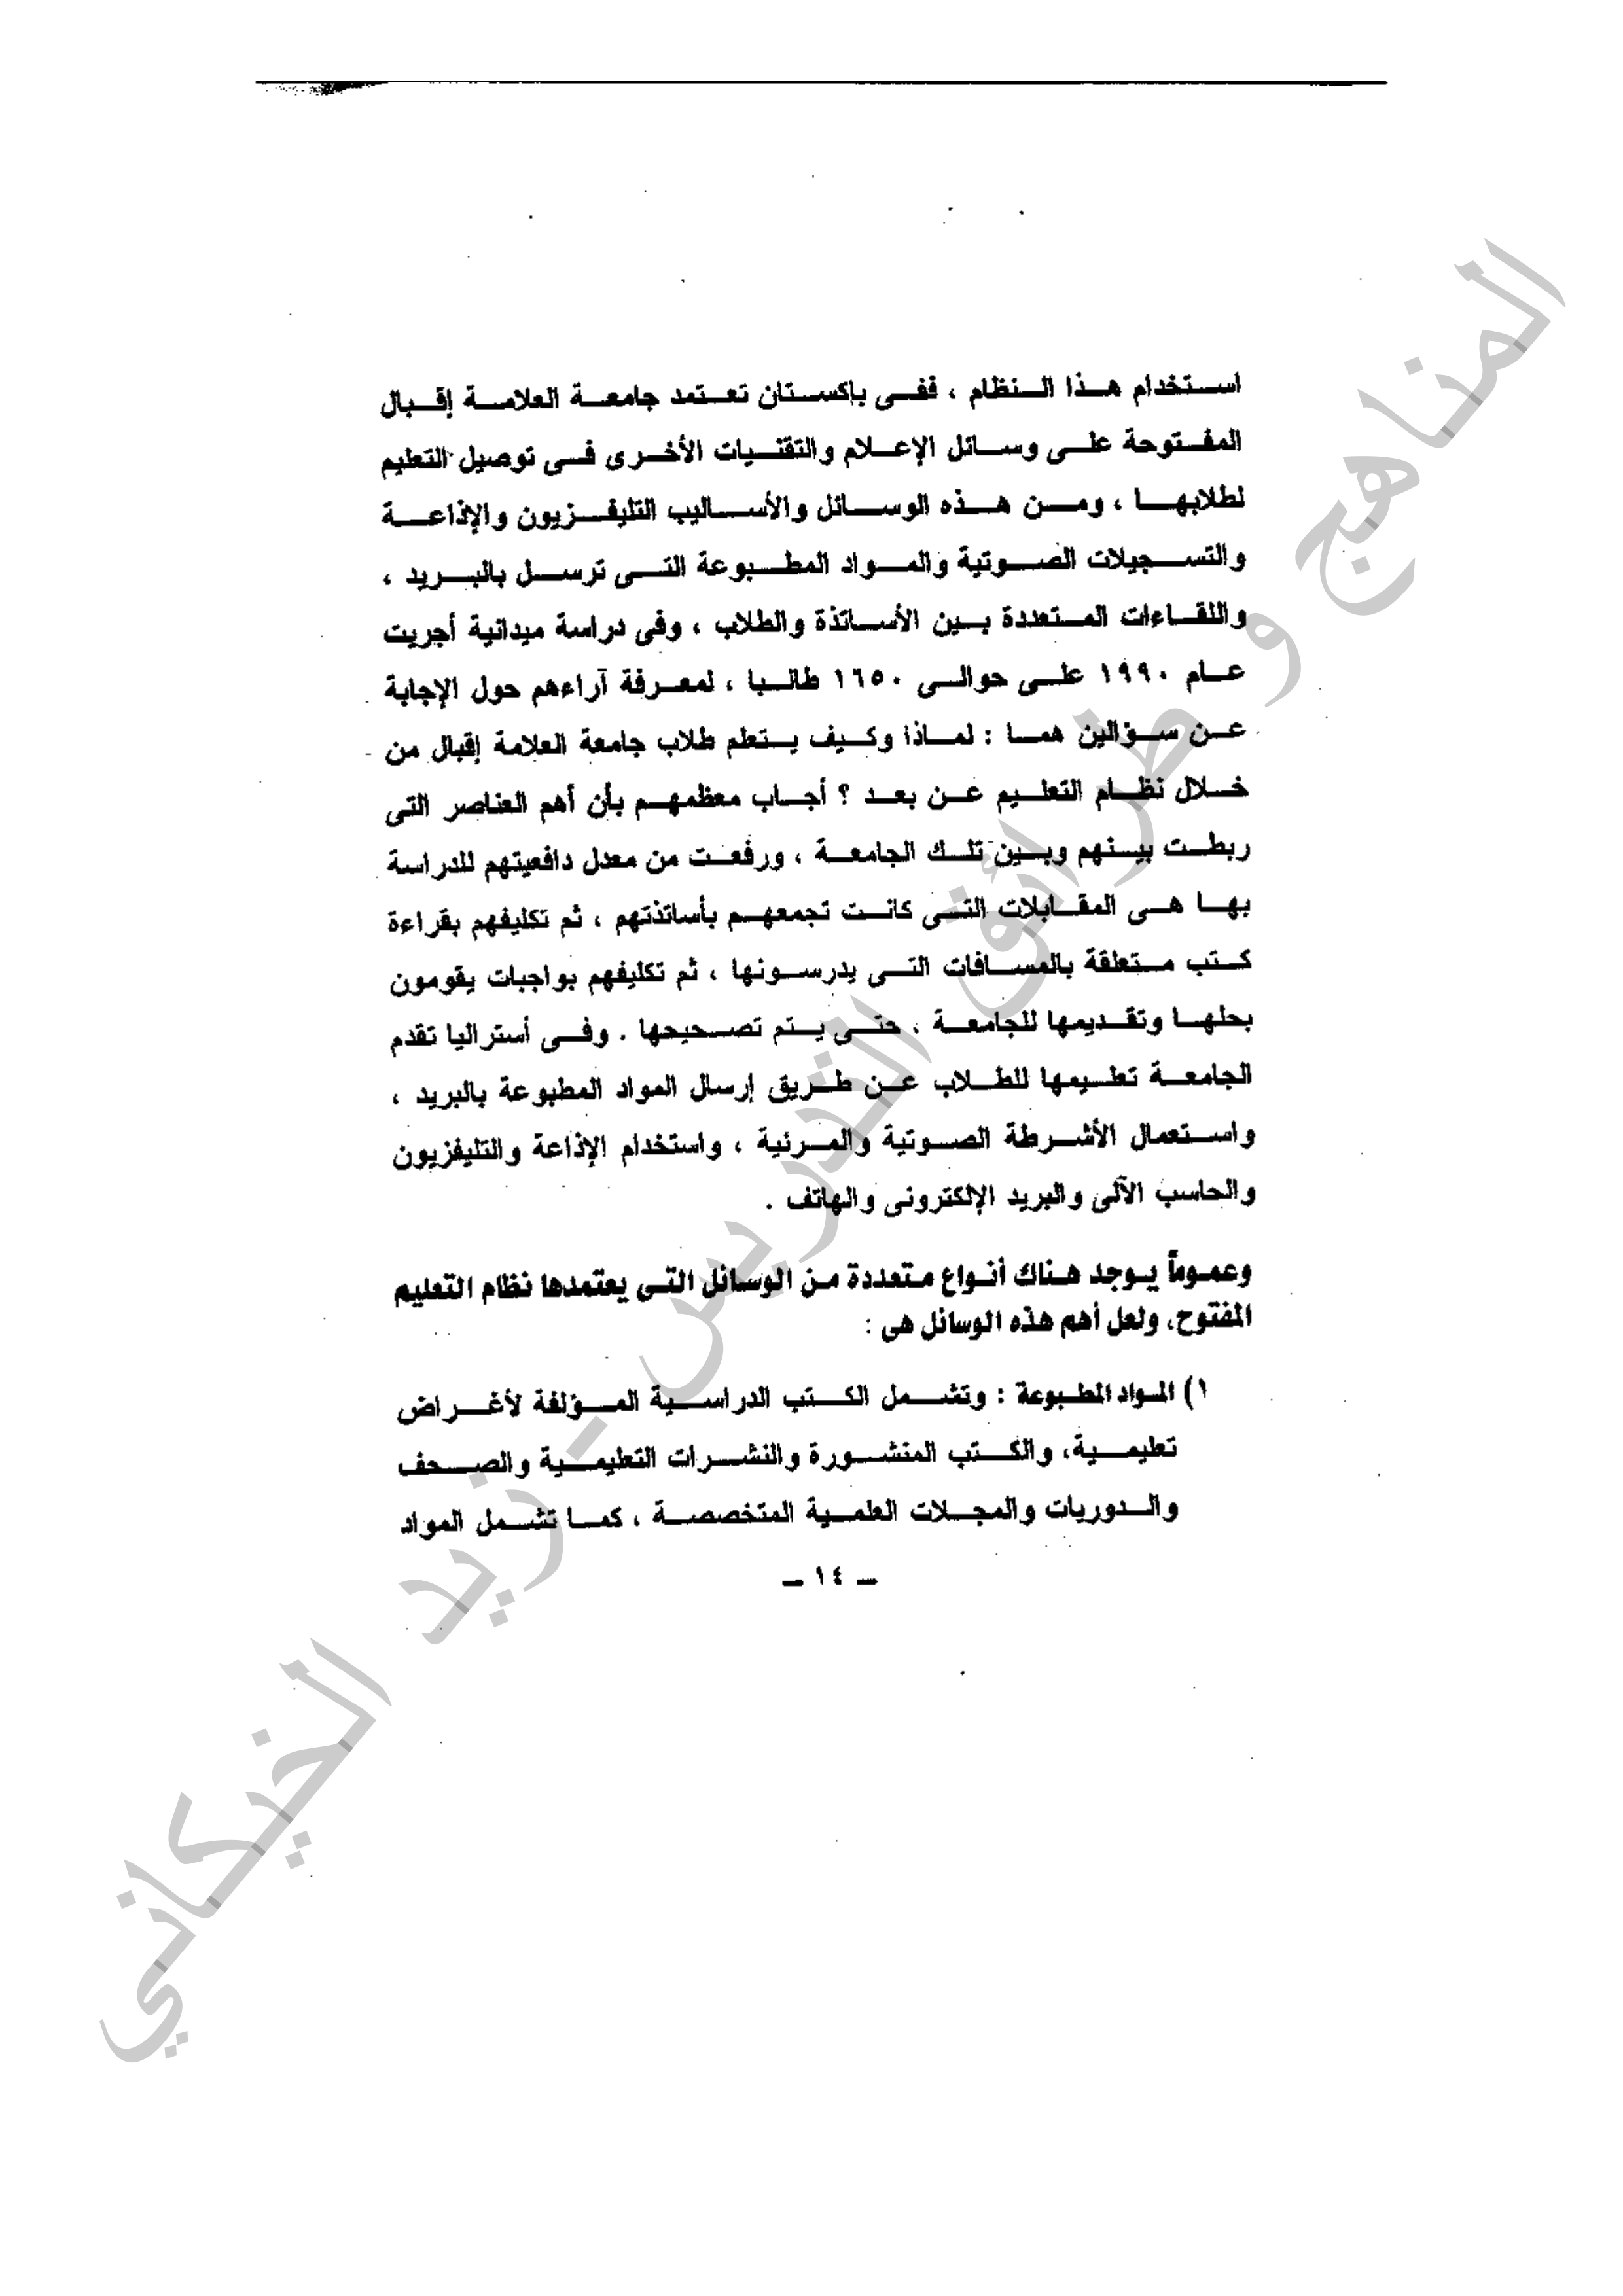 استخدام هذا النظام ، ففى باكستان تعتمد جامعة العلامة إقبال
المفتوحة على وسائل الإعلام والتقنيات الأخرى فى توصيل التعليم
لطلابها ، ومن هذه الوسائل والأساليب التليفزيون والإذاعة
والتسجيلات الصوتية والمواد المطبوعة التى ترسل بالبريد ،
واللقاءات المتعددة بين الأساتذة والطلاب ، وفى دراسة ميدانية أجريت
عام ١٩٩٠ على حوالى ١٦٥٠ طالبا ، لمعرفة آراءهم حول الإجابة
عن سؤالين هما : لماذا وكيف يتعلم طلاب جامعة العلامة إقبال من
خلال نظام التعليم عن بعد ؟ أجاب معظمهم بأن أهم العناصر التى
ربطت بينهم وبين تلك الجامعة ، ورفعت من معدل دافعيتهم للدراسة
بها هى المقابلات التى كانت تجمعهم بأساتذتهم ، ثم تكليفهم بقراءة
كتب متعلقة بالمساقات التى يدرسونها ، ثم تكليفهم بواجبات يقومون
بحلها وتقديمها للجامعة ، حتى يتم تصحيحها . وفى أستراليا تقدم
الجامعة تعليمها للطلاب عن طريق إرسال المواد المطبوعة بالبريد ،
واستعمال الأشرطة الصوتية والمرئية ، واستخدام الإذاعة والتليفزيون
والحاسب الآلى والبريد الإلكترونى والهاتف .
وعموماً يوجد هناك أنواع متعددة من الوسائل التى يعتمدها نظام التعليم
المفتوح، ولعل أهم هذه الوسائل هى :
١) المواد المطبوعة : وتشمل الكتب الدراسية المؤلفة لأغراض
تعليمية، والكتب المنشورة والنشرات التعليمية والصحف
والدوريات والمجلات العلمية المتخصصة ، كما تشمل المواد
ـ ١٤ ـ
المناهج وطرائق التدريس - زيد الخيكاني